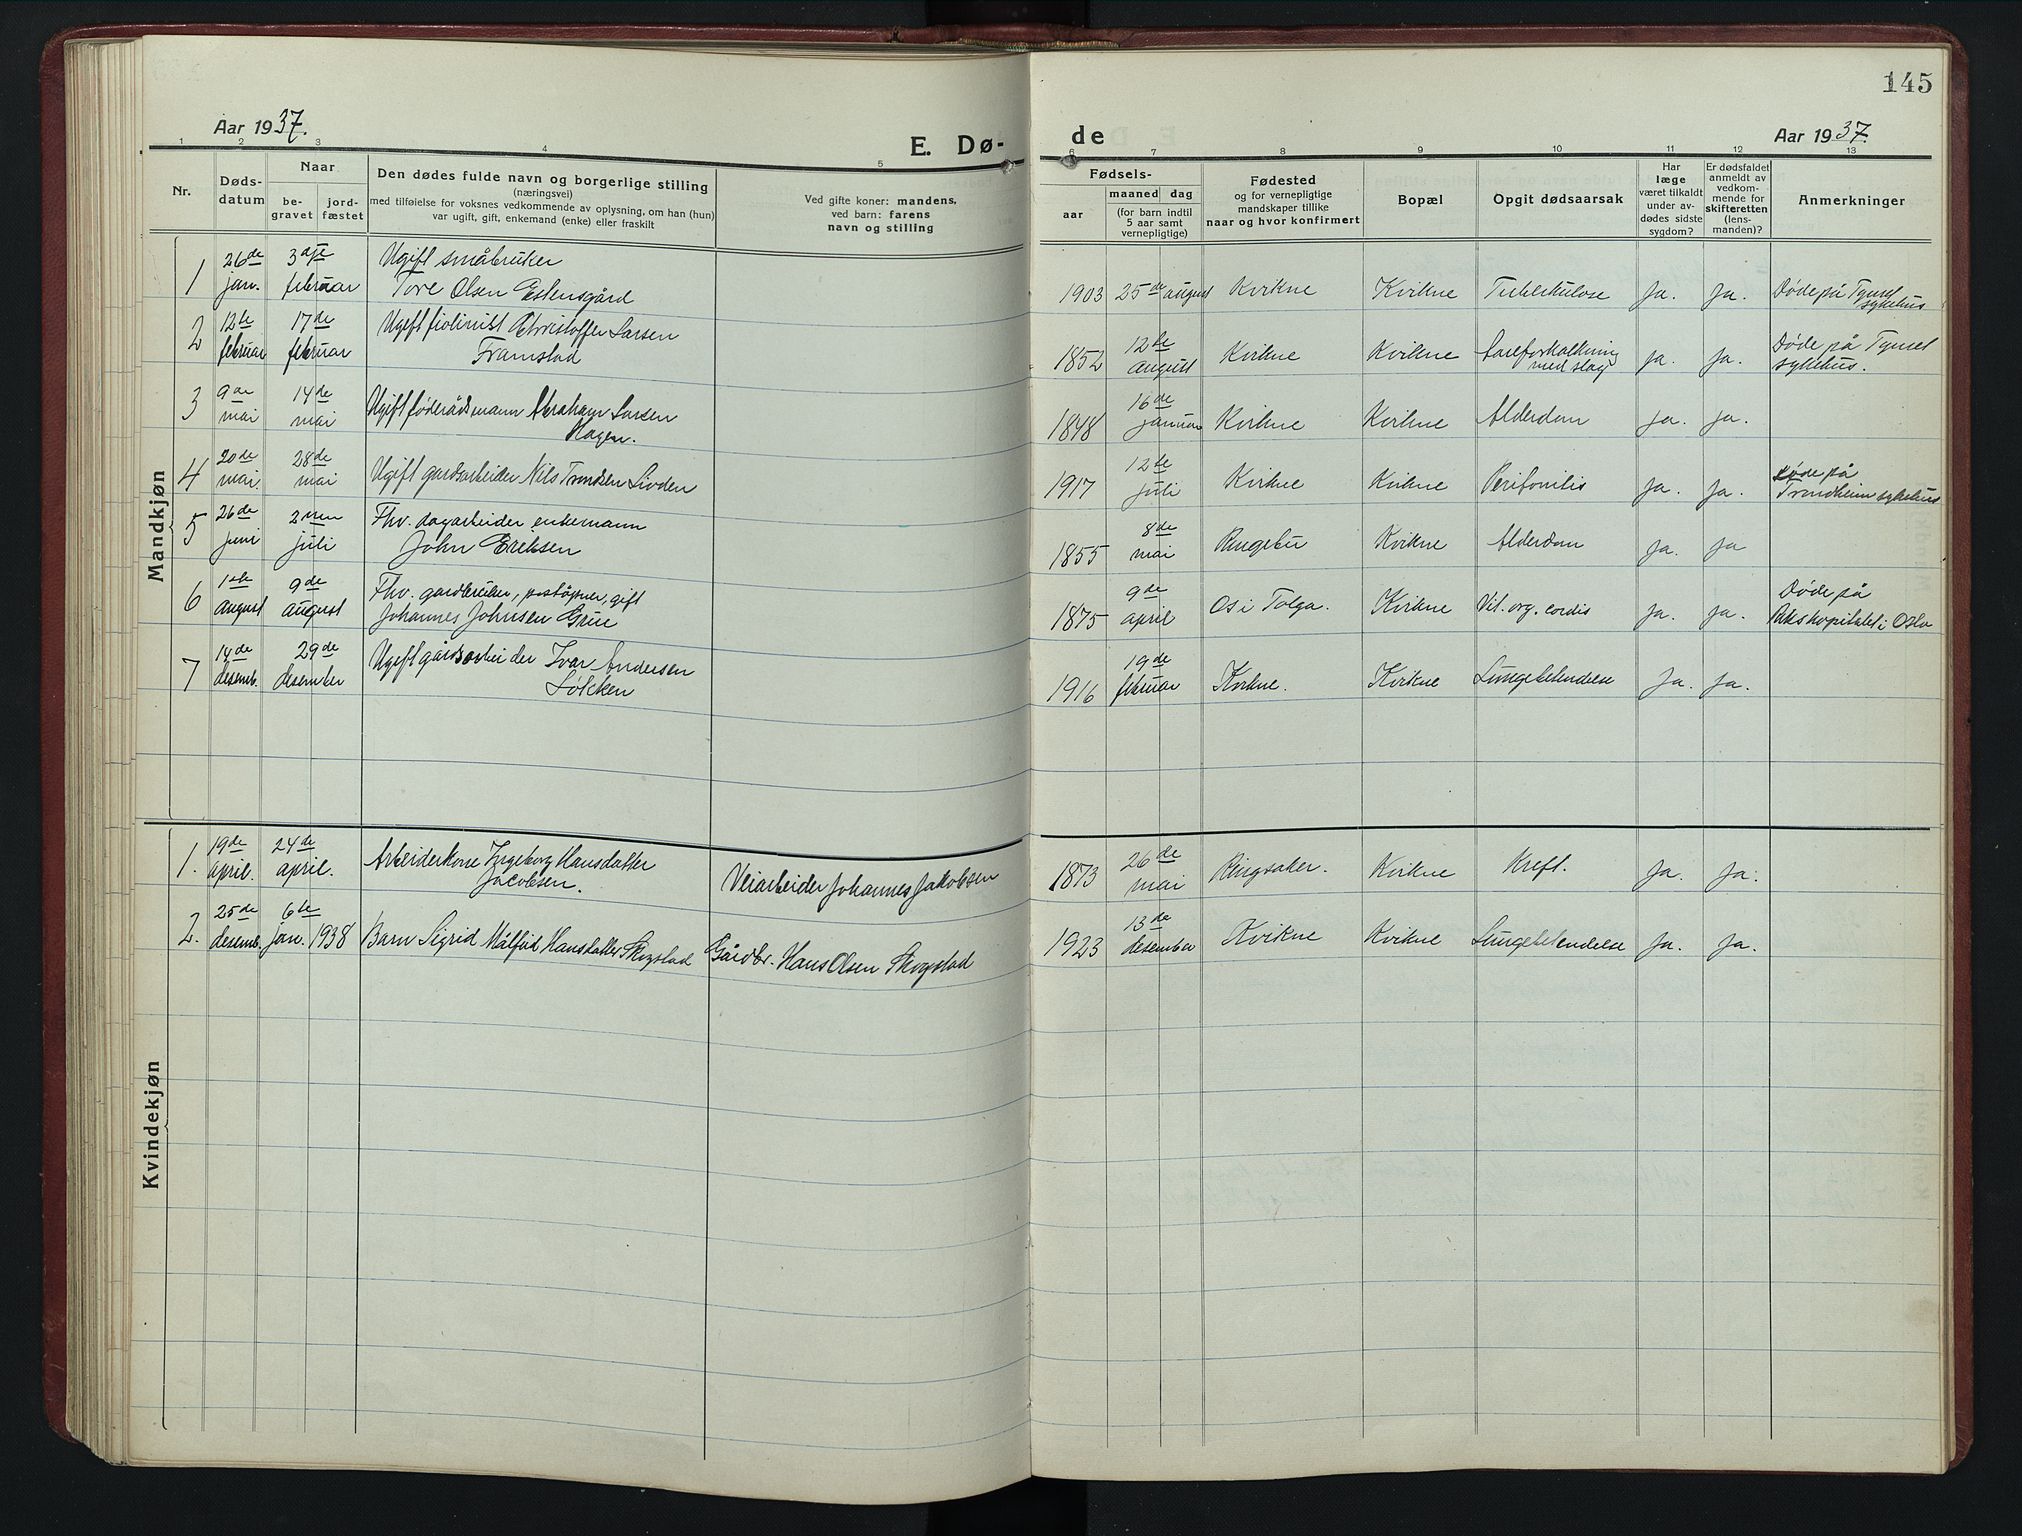 145
Aar 1937.
E. Dø-
de
Aar 1937.
1 2 3 4 5 6 7 8 9 10 11 12 13
Nr.
Døds-
datum
Naar
be-
gravet
jord-
fæstet
Den dødes fulde navn og borgerlige stilling
(næringsvei)
med tilføielse for voksnes vedkommende av oplysning, om han (hun)
var ugift, gift, enkemand (enke) eller fraskilt
Ved gifte koner: mandens,
ved barn: farens
navn og stilling
Fødsels-
aar
maaned dag
(for barn indtil
5 aar samt
vernepligtige)
Fødested
og for vernepligtige
mandskaper tillike
naar og hvor konfirmert
Bopæl
Opgit dødsaarsak
Har
læge
været tilkaldt
under av-
dødes sidste
sygdom?
Er dødsfaldet
anmeldt av
vedkom-
mende for
skifteretten
(lens-
manden)?
Anmerkninger
Mandkjøn
1 26de jan. 3dje februar Ugift småbruker
Tore Olsen Estensgård 1903 25de august Kvikne Kvikne Tuberkulose Ja. Ja. Døde på Tynset
sykehus
2 12te februar 17de februar Ugift fiolinist Christoffer Larsen
Framstad 1852 12te august Kvikne Kvikne Åreforkalkning
med slag ja. ja. Døde på Tynset
sykehus.
3 9de mai 14de mai Ugift føderådsmann Abraham Larsen
Hagen. 1848 16de januar Kvikne Kvikne Alderdom ja. ja.
4 20de mai. 28de mai Ugift gardsarbeider Nils Trondsen Livden 1917 12te juli Kvikne Kvikne Peritonitis ja. ja. Døde på
Trondheim sykehus
5 26de juni 2nen juli Fhv. dagarbeider enkemann
John Eriksen 1855 8de mai Ringebu Kvikne Alderdom ja. ja
6 1ste august 9de august Fhv. gardbruker, poståpner, gift
Johannes Johnsen Grue 1875 9de april Os i Tolga. Kvikne Vit. org. cordis ja. ja. Døde på
Rikshospitalet i Oslo
7 14de desemb. 29de desember Ugift gårdsarbeider Ivar Andersen
Løkken 1916 19de februar Kvikne. Kvikne Lungebetendelse Ja. Ja.
Kvindekjøn
1. 19de april. 24de april. Arbeiderkone Ingeborg Hansdatter
Jacobsen. Veiarbeider Johannes Jakobsen 1873 26de mai Ringsaker. Kvikne Kreft. Ja. Ja.
2. 25de desemb. 6te jan. 1938 Barn Sigrid Målfrid Hansdatter Skogstad Gårdbr. Hans Olsen Skogstad 1923 13de desember Kvikne Kvikne Lungebetendelse Ja. Ja.